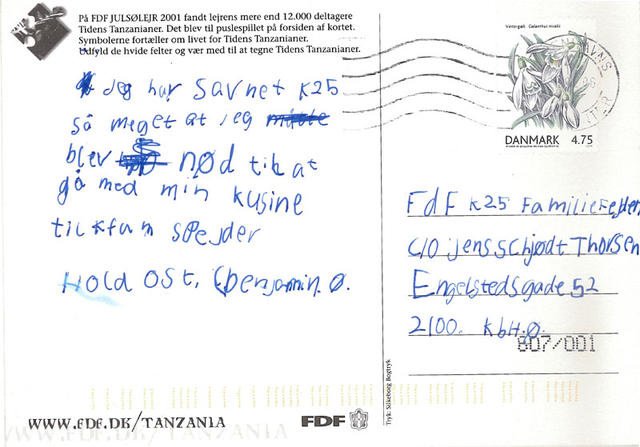 På FDF JULSØLEJR 2001 fandt lejrens mere end 12.000 deltagere
Tidens Tanzanianer. Det blev til puslespillet på forsiden af kortet.
Symbolerne fortæller om livet for Tidens Tanzanianer.
Udfyld de hvide felter og vær med til at tegne Tidens Tanzanianer.
Jeg har savnet K25
så meget at jeg
blev nød til at
gå med min kusine
til kfum spejder
Hold Ost, (benjamin. Ø.
Vintergæk Galanthus nivalis
DANMARK 4.75
FdF K25 Familiefejder
C/O jens schjødt Thorsen
Engelstedsgade 52
2100. Kbh.Ø
807/001
Tryk: Silkeborg Bogtryk
WWW.FDF.DK/TANZANIA
FDF